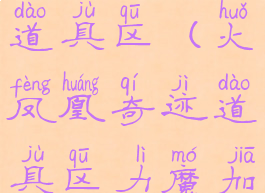 dào jù qū huǒ
道具区（火
fèng huáng qí jì dào
凤凰奇迹道
jù qū lì mó jiā
具区力魔加